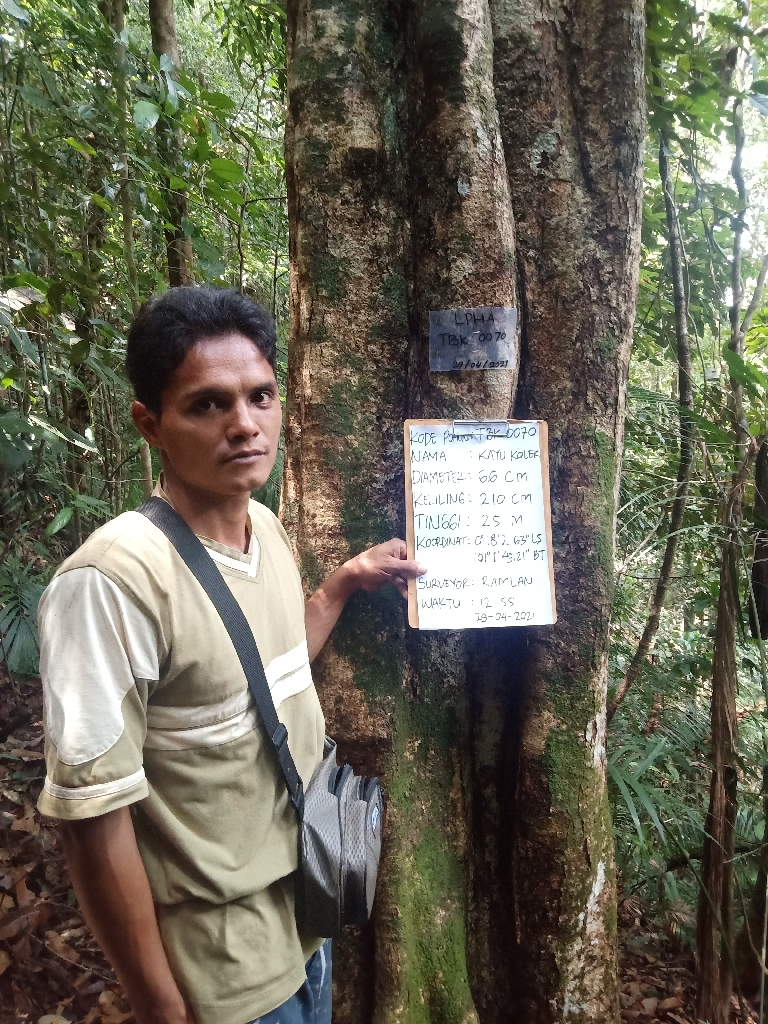 LPHA
TBK 0070
29/04/2021
KODE POHON: TBK 0070
NAMA : KAYU KOLER
DIAMETER: 66 CM
KELILING: 210 CM
TINGGI : 25 M
KOORDINAT: 0° 18'2 63" LS
101° 1' 43,21" BT
SURVEYOR: RAMLAN
WAKTU : 12 55
29-04-2021